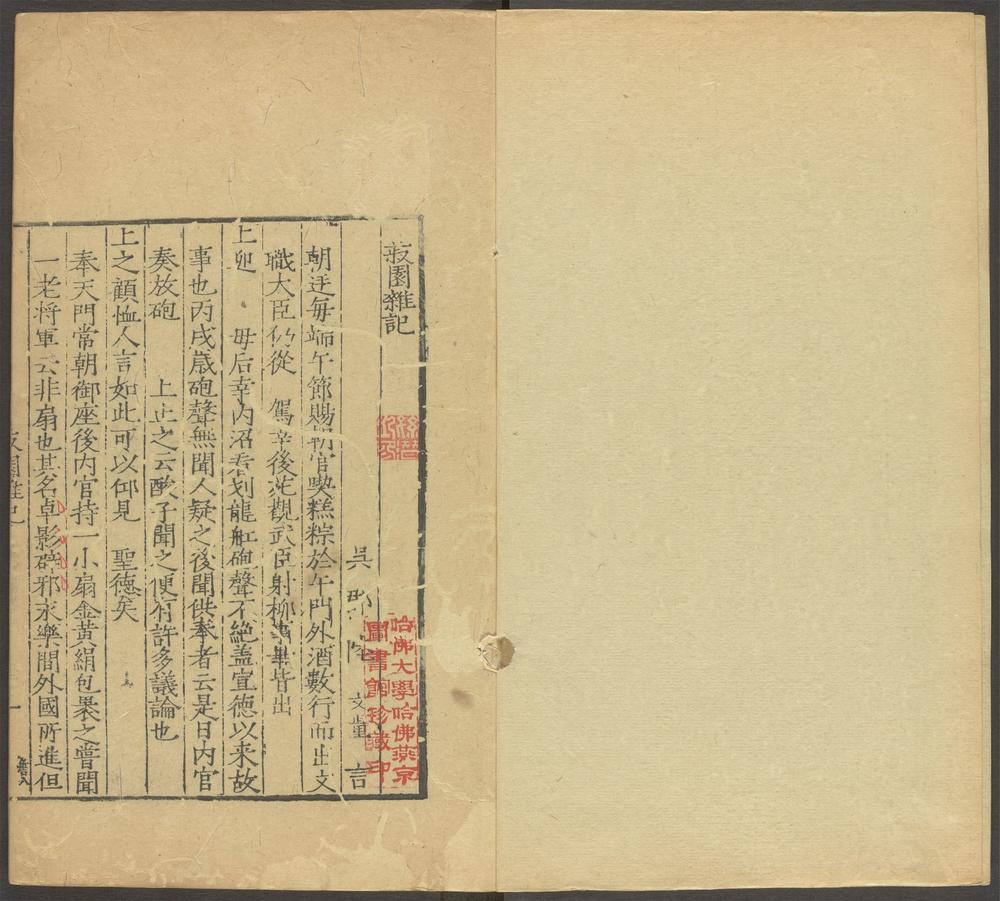 菽園雜記
吳郡陸 文量 言
朝廷每端午節賜朝官喫糕粽於午門外酒數行而出文
職大臣仍從 駕幸後苑觀武臣射柳事畢皆出
上迎 母后幸內沼看划龍舡砲聲不絶盖宣德以来故
事也丙戌歲砲聲無聞人疑之後聞供奉者云是日內官
奏放砲 上止之云酸子聞之便有許多議論也
上之顧恤人言如此可以仰見 聖德矣
奉天門常朝御座後內官持一小扇金黃絹包裹之嘗聞
一老將軍云非扇也其名卓影辟邪永樂間外國所進但
菽園雜記
一
哈佛大學哈佛燕京
圖書館珍藏印